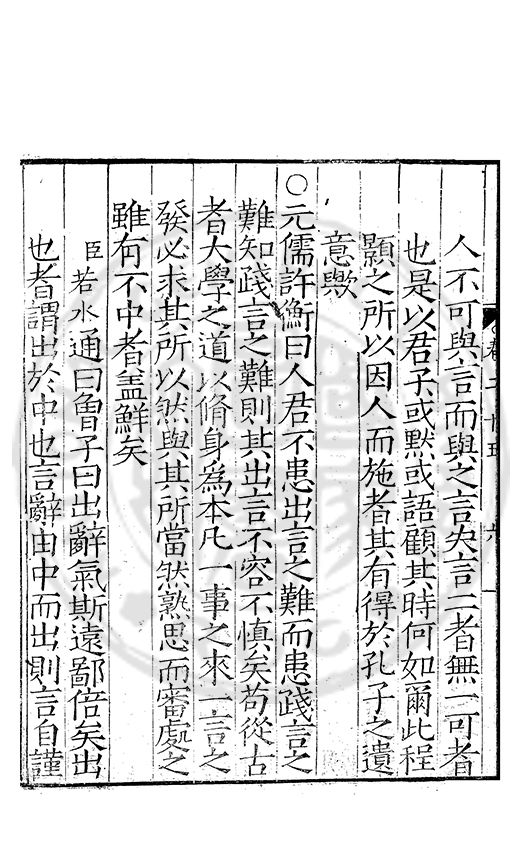 人不可與言而與之言失言二者無一可者
也是以君子或默或語顧其時何如爾此程
顥之所以因人而施者其有得於孔子之遺
意歟
○元儒許衡曰人君不患出言之難而患踐言之
難知踐言之難則其出言不容不慎矣苟從古
者大學之道以脩身為本凡一事之來一言之
發必求其所以然與其所當然熟思而審處之
雖有不中者盖鮮矣
臣若水通曰曾子曰出辭氣斯遠鄙倍矣出
也者謂出於中也言辭由中而出則言自謹